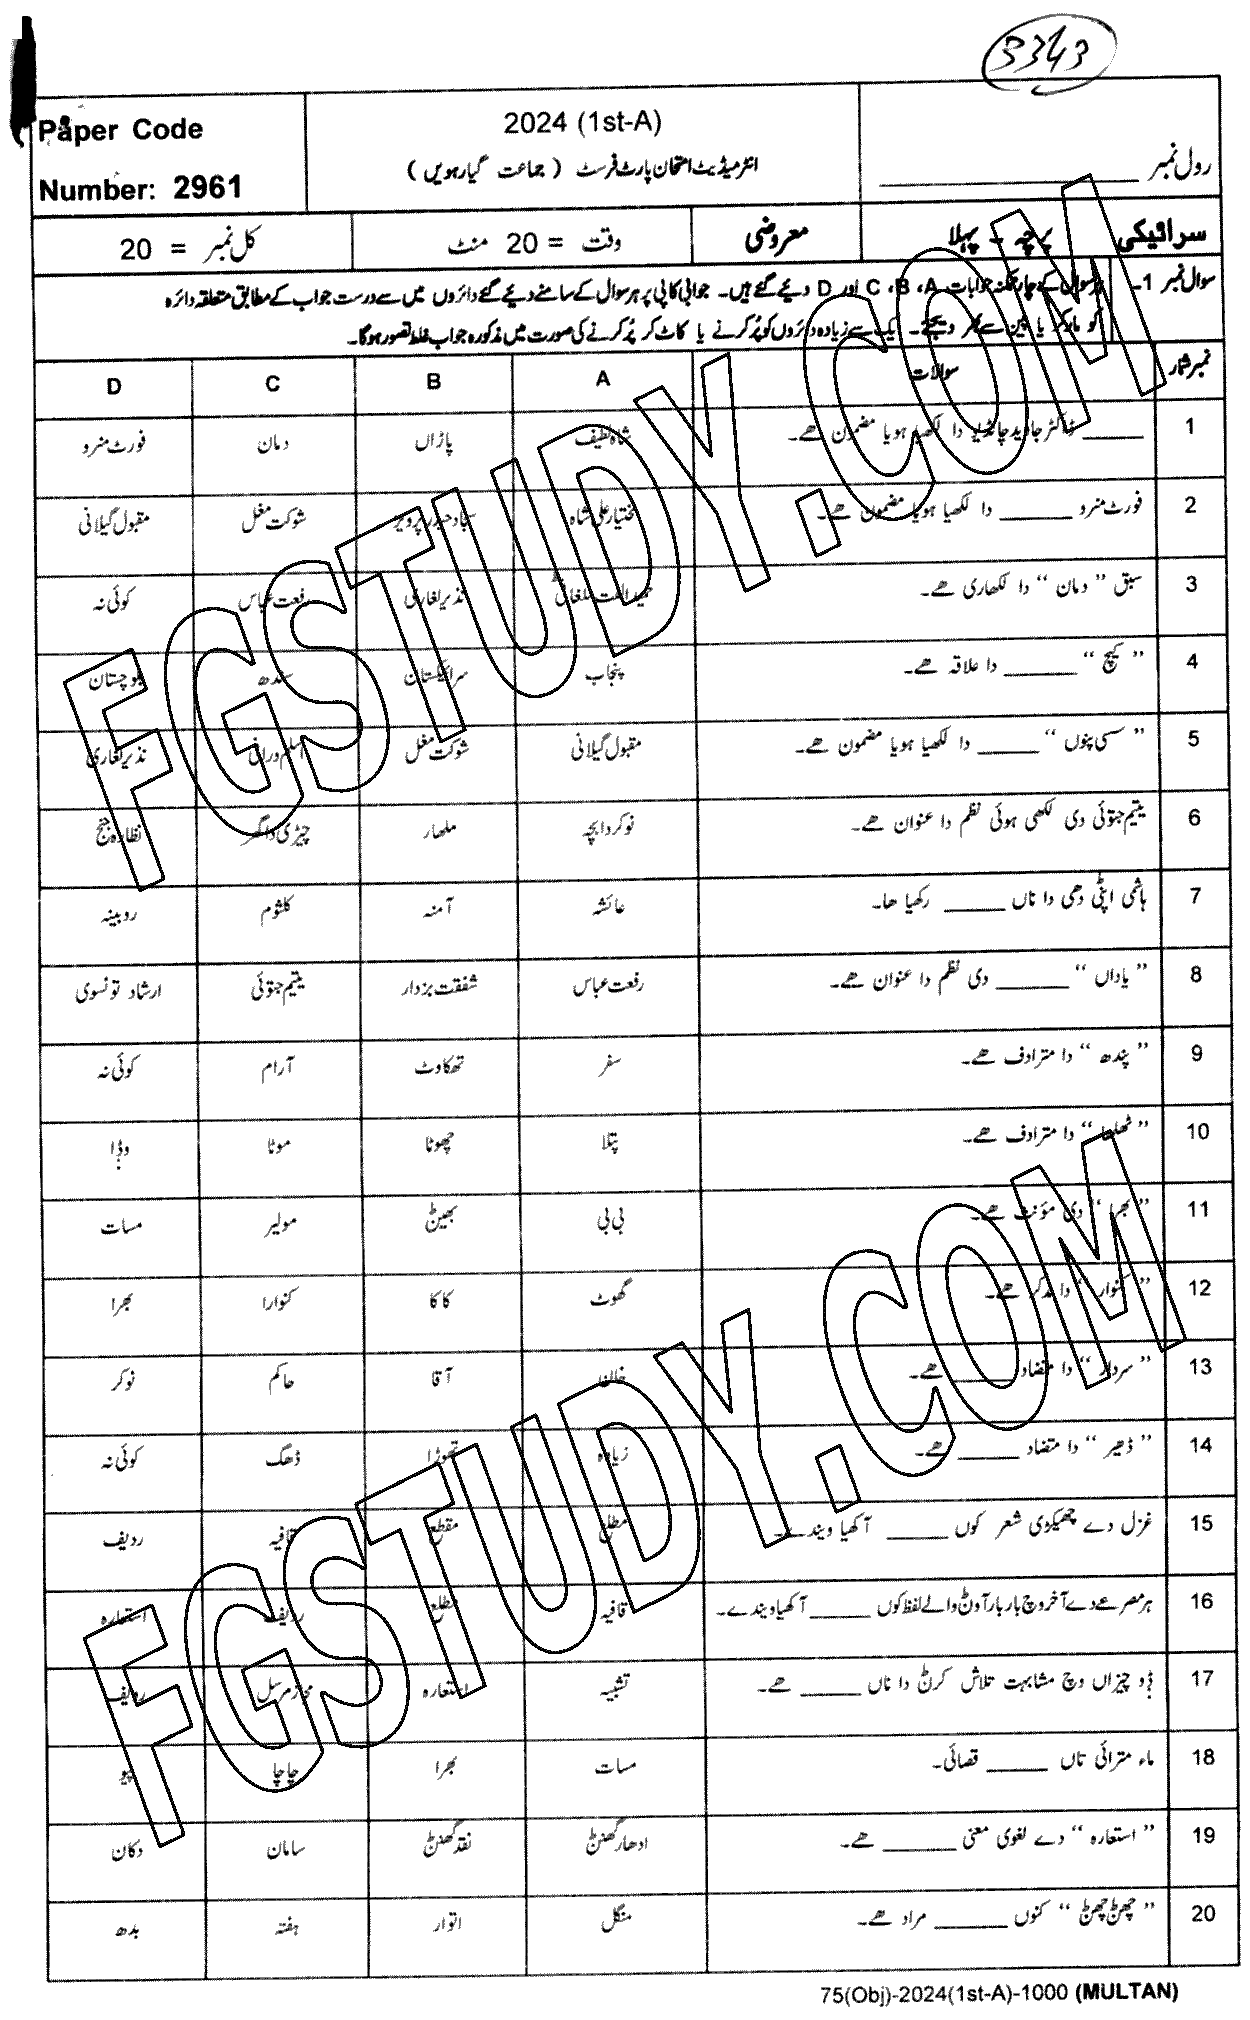 3343
Paper Code
Number: 2961
2024 (1st-A)
انٹرمیڈیٹ امتحان پارٹ فرسٹ ( جماعت گیارہویں )
رول نمبر ________
سرائیکی پرچہ - پہلا
معروضی
وقت = 20 منٹ
کل نمبر = 20
سوال نمبر 1۔ ہر سوال کے چار ممکنہ جوابات A، B، C اور D دیئے گئے ہیں۔ جوابی کاپی پر ہر سوال کے سامنے دیئے گئے دائروں میں سے درست جواب کے مطابق متعلقہ دائرہ
کو مارکر یا پین سے بھر دیجئے۔ ایک سے زیادہ دائروں کو پُر کرنے یا کاٹ کر پُر کرنے کی صورت میں مذکورہ جواب غلط تصور ہوگا۔
نمبر شمار سوالات A B C D
1 ______ ڈاکٹر جاوید چانڈیو دا لکھیا ہویا مضمون ھے۔ شاہ لطیف پاڑاں دمان فورٹ منرو
2 فورٹ منرو ______ دا لکھیا ہویا مضمون ھے۔ بختیار علی شاہ سجاد حیدر پرویز شوکت مغل مقبول گیلانی
3 سبق " دمان " دا لکھاری ھے۔ حمید الفت ملغانی نذیر لغاری رفعت عباس کوئی نہ
4 " کیچ " ______ دا علاقہ ھے۔ پنجاب سرائیکستان سندھ بلوچستان
5 " سسی پنوں " ______ دا لکھیا ہویا مضمون ھے۔ مقبول گیلانی شوکت مغل اسلم درانی نذیر لغاری
6 یتیم جتوئی دی لکھی ہوئی نظم دا عنوان ھے۔ نوکر دا بچہ ملھار چیڑی دا گھر نظارہ جج
7 ہاشمی اپݨی دھی دا ناں ______ رکھیا ھا۔ عائشہ آمنہ کلثوم روبینہ
8 " یاداں " ______ دی نظم دا عنوان ھے۔ رفعت عباس شفقت بزدار یتیم جتوئی ارشاد تونسوی
9 " پندھ " دا مترادف ھے۔ سفر تھکاوٹ آرام کوئی نہ
10 " ٹھلھا " دا مترادف ھے۔ پتلا چھوٹا موٹا وݙا
11 " بھرا " دی مؤنث ھے۔ بی بی بھیݨ مولیر مسات
12 " کنوار " دا مذکر ھے۔ گھوٹ کاکا کنوارا بھرا
13 " سردار " دا متضاد ______ ھے۔ خان آقا حاکم نوکر
14 " ڈھیر " دا متضاد ______ ھے۔ زیادہ تھوڑا ڈھگ کوئی نہ
15 غزل دے چھیکڑی شعر کوں ______ آکھیا ویندے۔ مطلع مقطع قافیہ ردیف
16 ہر مصرعے دے آخر وچ بار بار آوݨ والے لفظ کوں ______ آکھیا ویندے۔ قافیہ مطلع ردیف استعارہ
17 ݙو چیزاں وچ مشابہت تلاش کرݨ دا ناں ______ ھے۔ تشبیہ استعارہ مجاز مرسل ردیف
18 ماء مترائی تاں ______ قصائی۔ مسات بھرا چاچا پیو
19 " استعارہ " دے لغوی معنی ______ ھے۔ ادھار گھنݨ نقد گھنݨ سامان دکان
20 " چھݨ چھݨ " کنوں ______ مراد ھے۔ منگل اتوار ہفتہ بدھ
75(Obj)-2024(1st-A)-1000 (MULTAN)
FGSTUDY.COM
FGSTUDY.COM